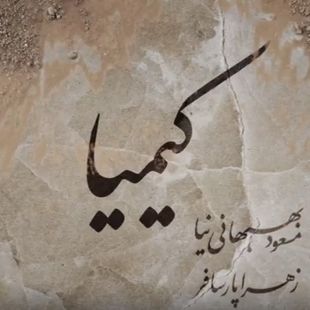 کیمیا
مسعود بهبهانی نیا
زهرا پارسافر